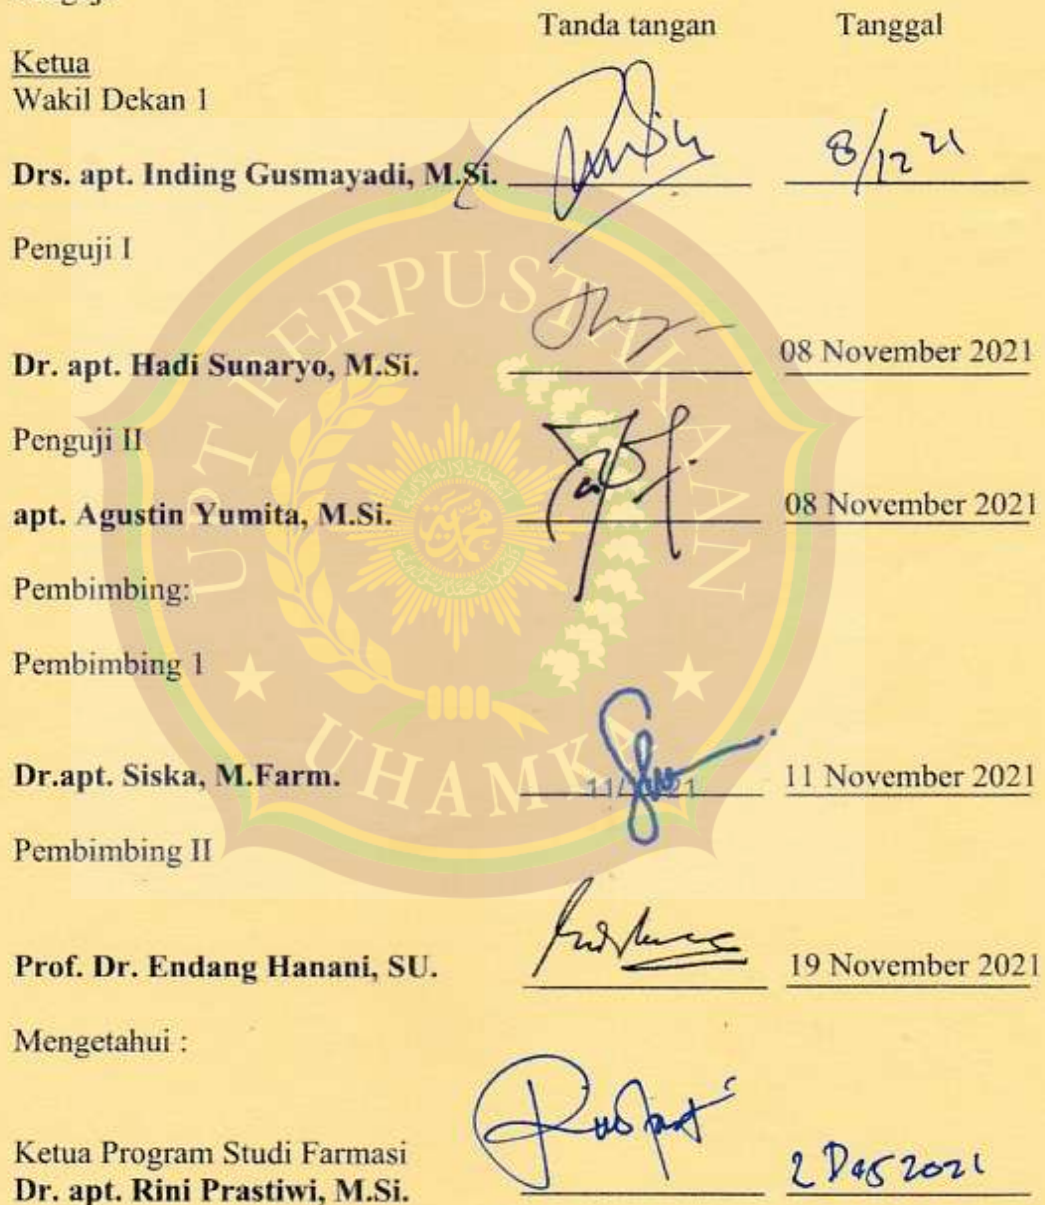 Tanda tangan Tanggal
Ketua
Wakil Dekan 1
Drs. apt. Inding Gusmayadi, M.Si. 8/12 21
Penguji I
Dr. apt. Hadi Sunaryo, M.Si. 08 November 2021
Penguji II
apt. Agustin Yumita, M.Si. 08 November 2021
Pembimbing:
Pembimbing 1
Dr.apt. Siska, M.Farm. 11 November 2021
Pembimbing II
Prof. Dr. Endang Hanani, SU. 19 November 2021
Mengetahui :
Ketua Program Studi Farmasi
Dr. apt. Rini Prastiwi, M.Si. 2 Des 2021
UPT PERPUSTAKAAN
UHAMKA